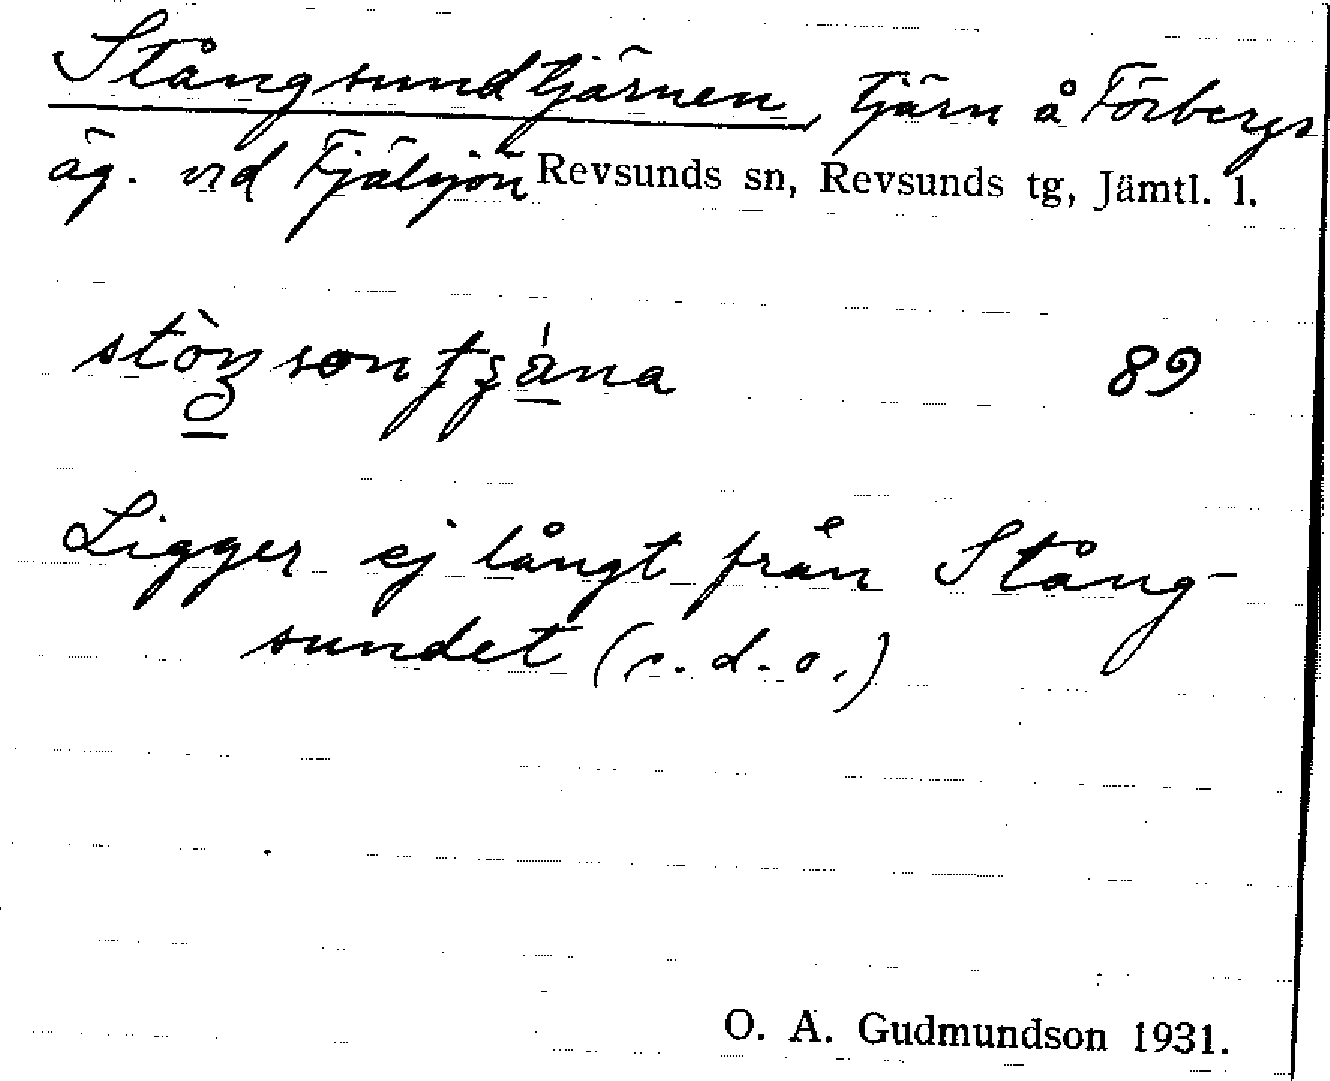 Stångsundtjärnen, tjärn å Förbergs
äg. vid Fjälsjön Revsunds sn, Revsunds tg, Jämtl. l.
89
Ligger ej långt från Stång-
sundet (s.d.o.)
O. A. Gudmundson 1931.